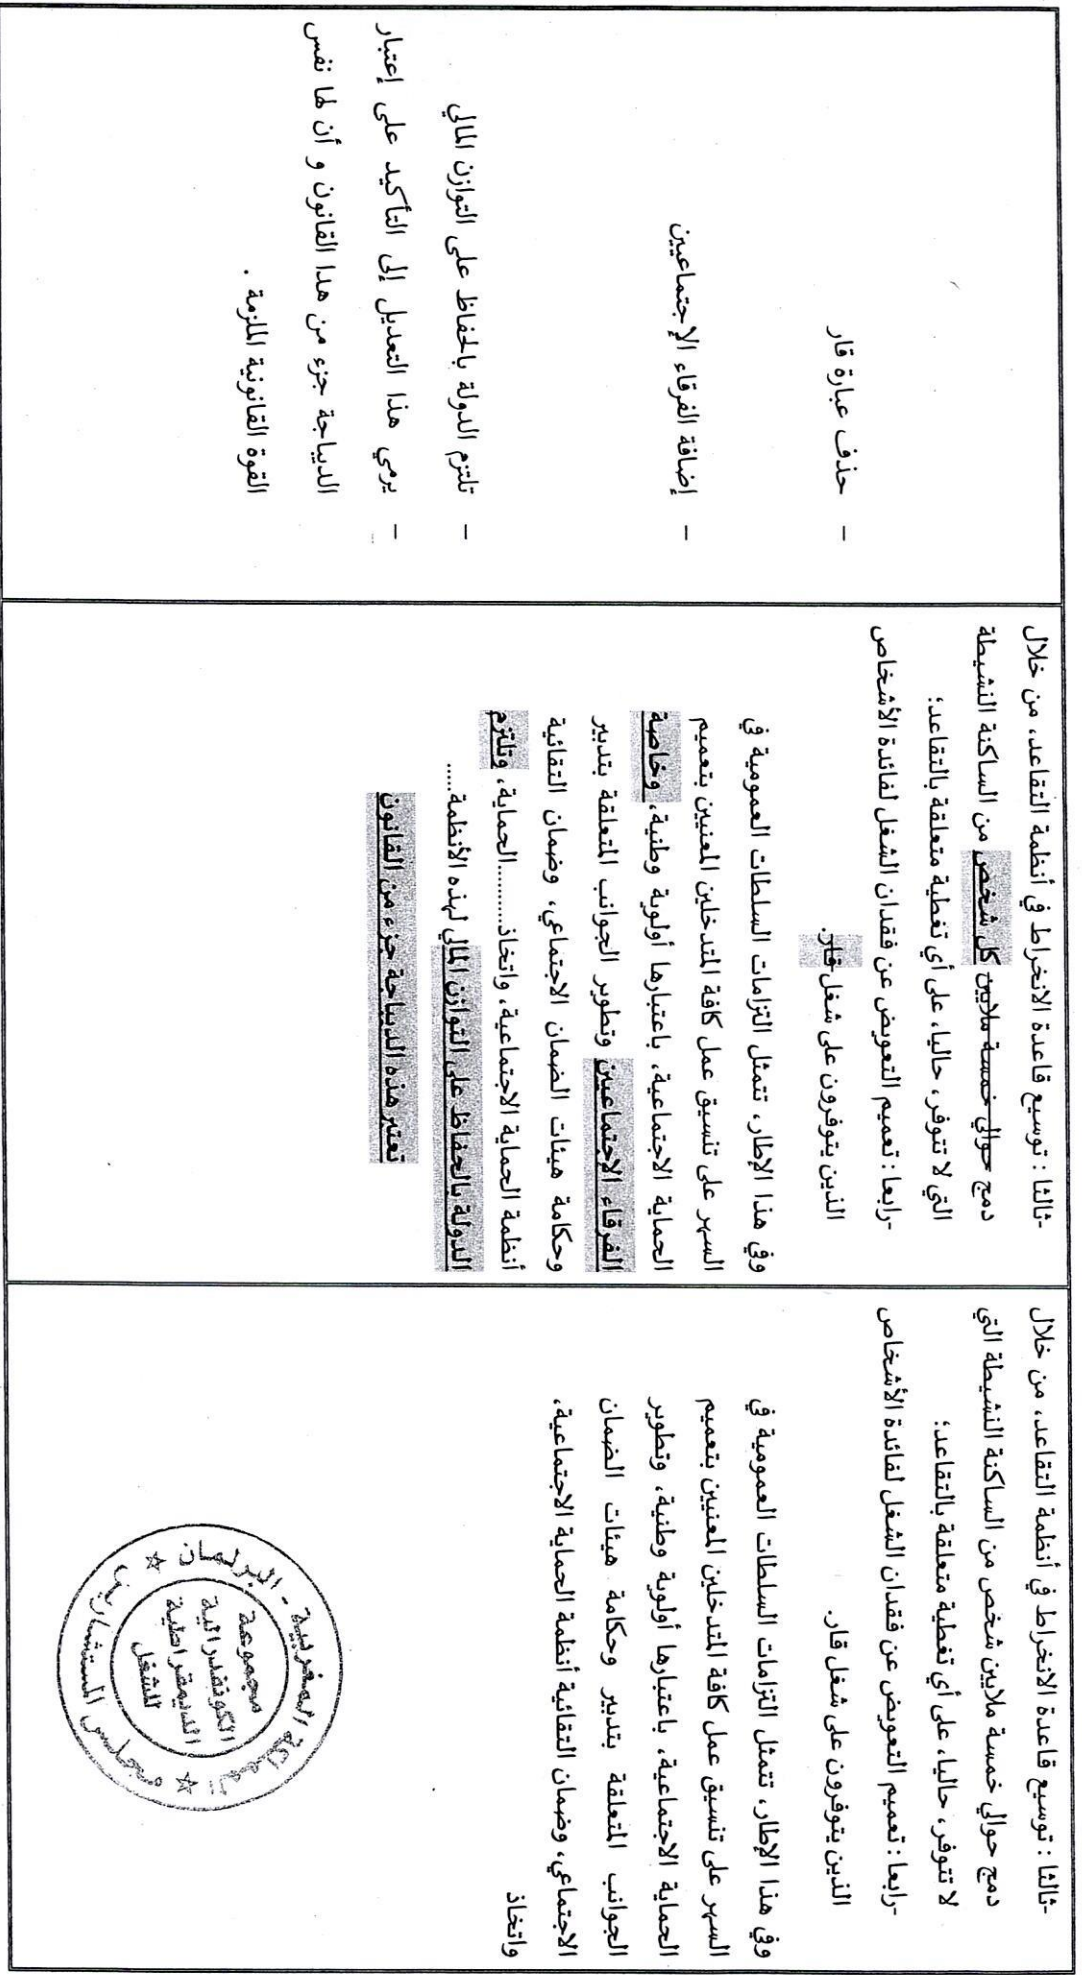 -ثالثا : توسيع قاعدة الانخراط في أنظمة التقاعد، من خلال
دمج حوالي خمسة ملايين شخص من الساكنة النشيطة التي
لا تتوفر، حاليا، على أي تغطية متعلقة بالتقاعد؛
-رابعا : تعميم التعويض عن فقدان الشغل لفائدة الأشخاص
الذين يتوفرون على شغل قار.
وفي هذا الإطار، تتمثل التزامات السلطات العمومية في
السهر على تنسيق عمل كافة المتدخلين المعنيين بتعميم
الحماية الاجتماعية، باعتبارها أولوية وطنية، وتطوير
الجوانب المتعلقة بتدبير وحكامة هيئات الضمان
الاجتماعي، وضمان التقائية أنظمة الحماية الاجتماعية،
واتخاذ
المملكة المغربية - البرلمان
مجلس المستشارين
مجموعة
الكونفدرالية
الديمقراطية
للشغل
-ثالثا : توسيع قاعدة الانخراط في أنظمة التقاعد، من خلال
دمج حوالي خمسة ملايين كل شخص من الساكنة النشيطة
التي لا تتوفر، حاليا، على أي تغطية متعلقة بالتقاعد؛
-رابعا : تعميم التعويض عن فقدان الشغل لفائدة الأشخاص
الذين يتوفرون على شغل قار.
وفي هذا الإطار، تتمثل التزامات السلطات العمومية في
السهر على تنسيق عمل كافة المتدخلين المعنيين بتعميم
الحماية الاجتماعية، باعتبارها أولوية وطنية، وخاصة
الفرقاء الاجتماعيين وتطوير الجوانب المتعلقة بتدبير
وحكامة هيئات الضمان الاجتماعي، وضمان التقائية
أنظمة الحماية الاجتماعية، واتخاذ.........الحماية، وتلتزم
الدولة بالحفاظ على التوازن المالي لهذه الأنظمة.....
تعتبر هذه الديباجة جزء من القانون
- حذف عبارة قار
- إضافة الفرقاء الإجتماعيين
- تلتزم الدولة بالحفاظ على التوازن المالي
- يرمي هذا التعديل إلى التأكيد على إعتبار
الديباجة جزء من هذا القانون و أن لها نفس
القوة القانونية الملزمة .